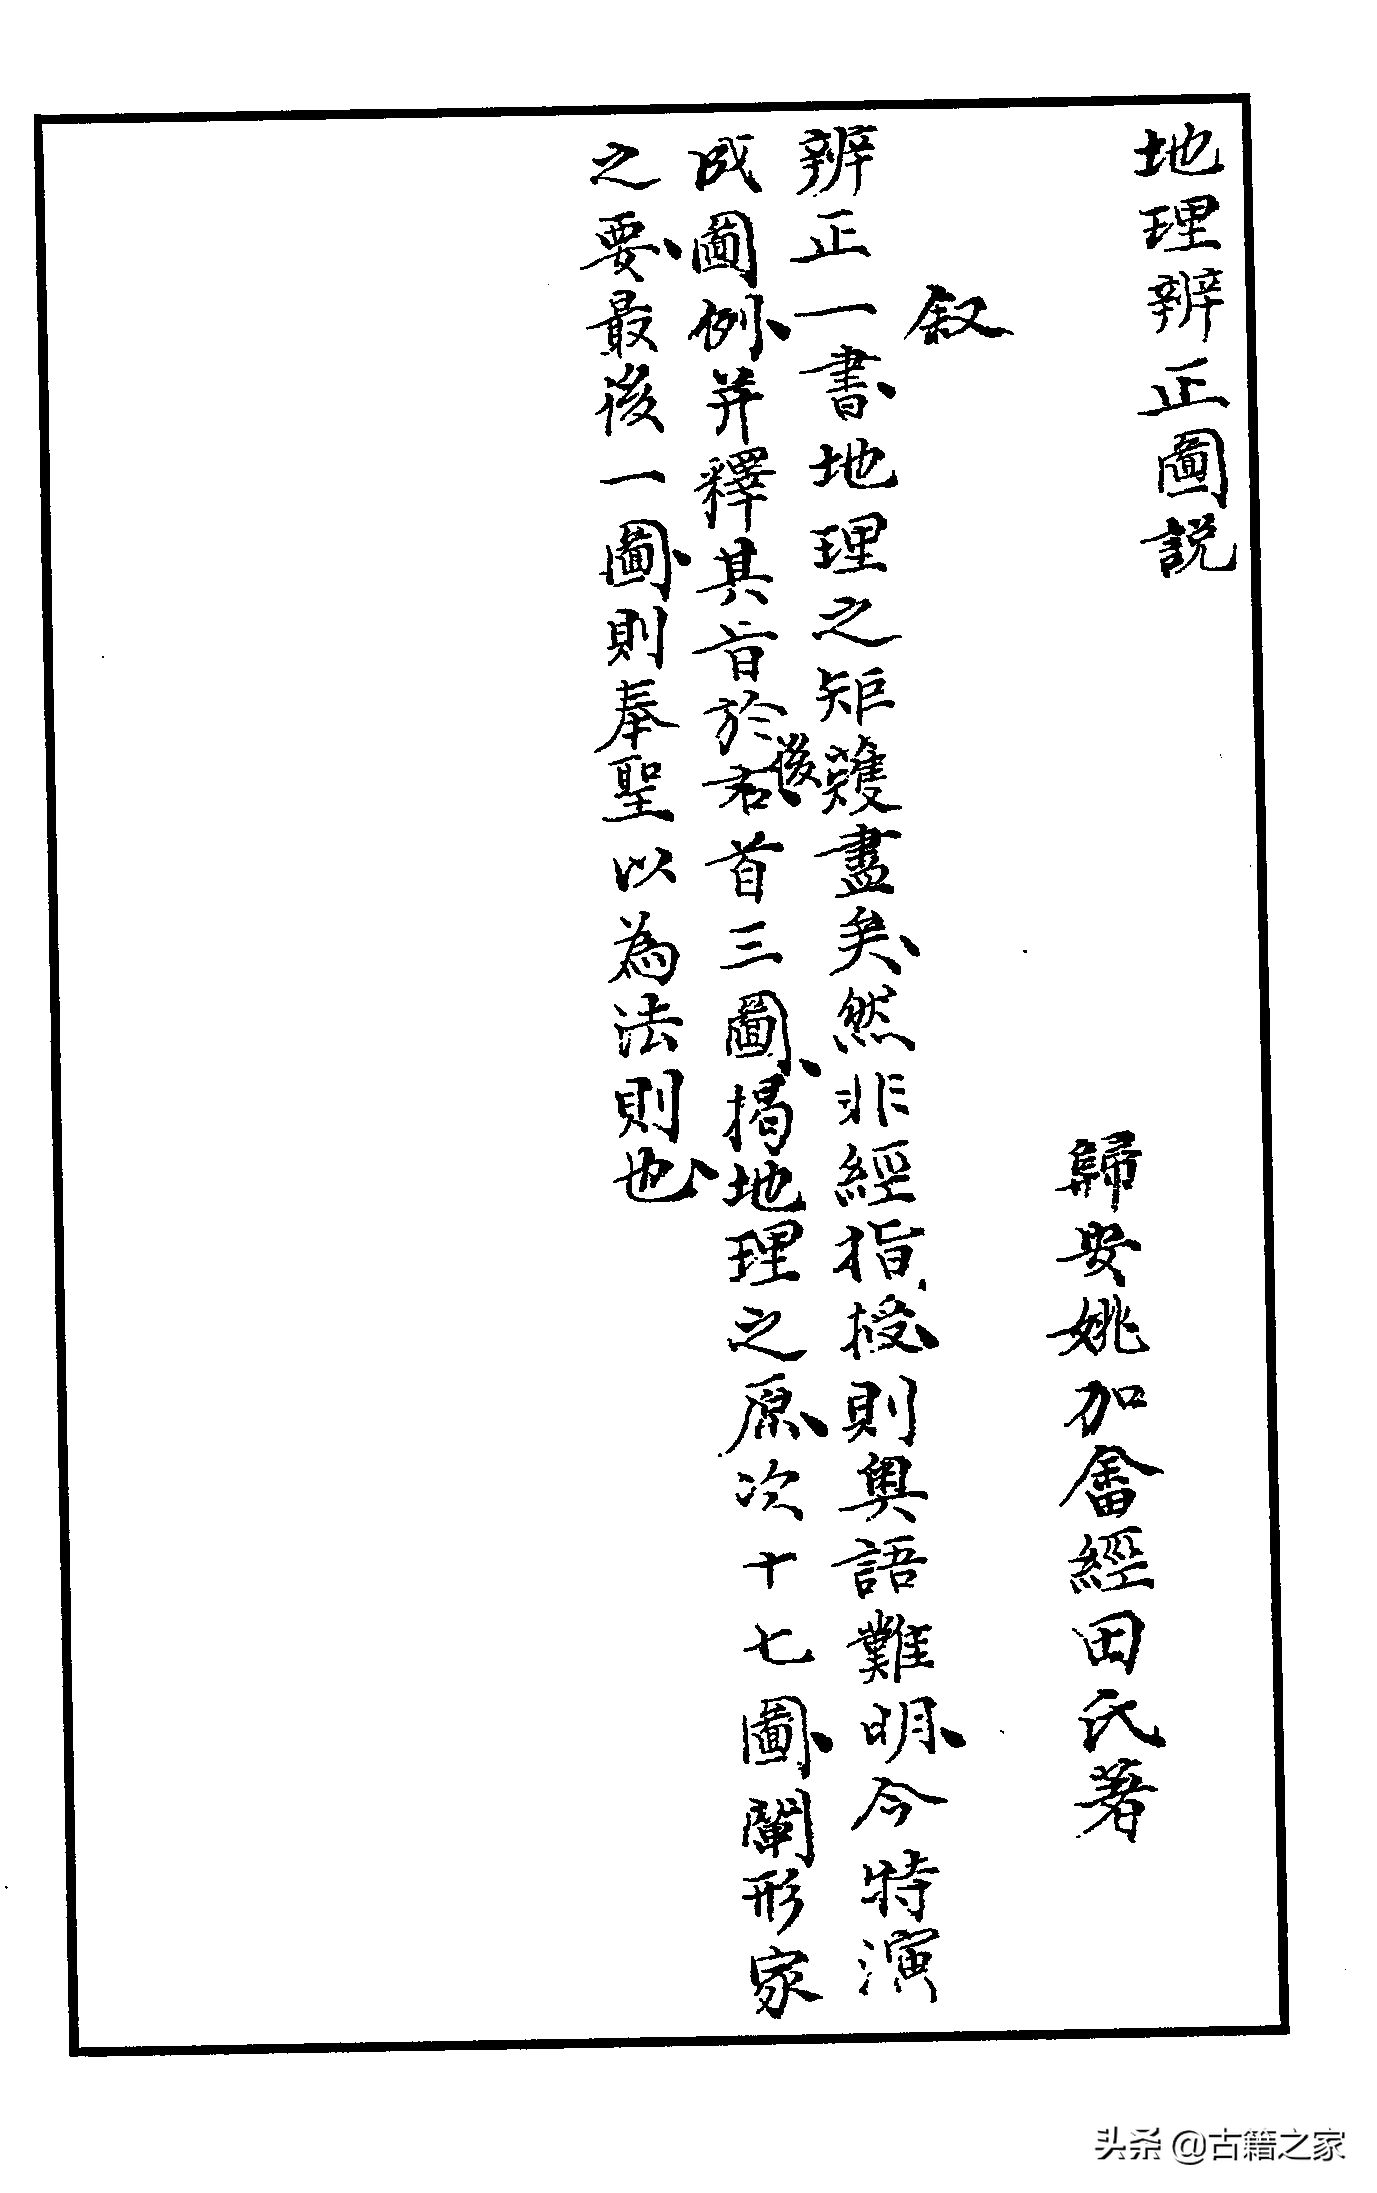 地理辨正圖説
歸安姚加畬經田氏著
叙
辨正一書、地理之矩矱盡矣、然非經指授、則奧語難明、今特演
成圖例、并釋其旨於右後、首三圖、揭地理之原、次十七圖、闡形家
之要、最後一圖、則奉聖以為法則也、
头条 @古籍之家